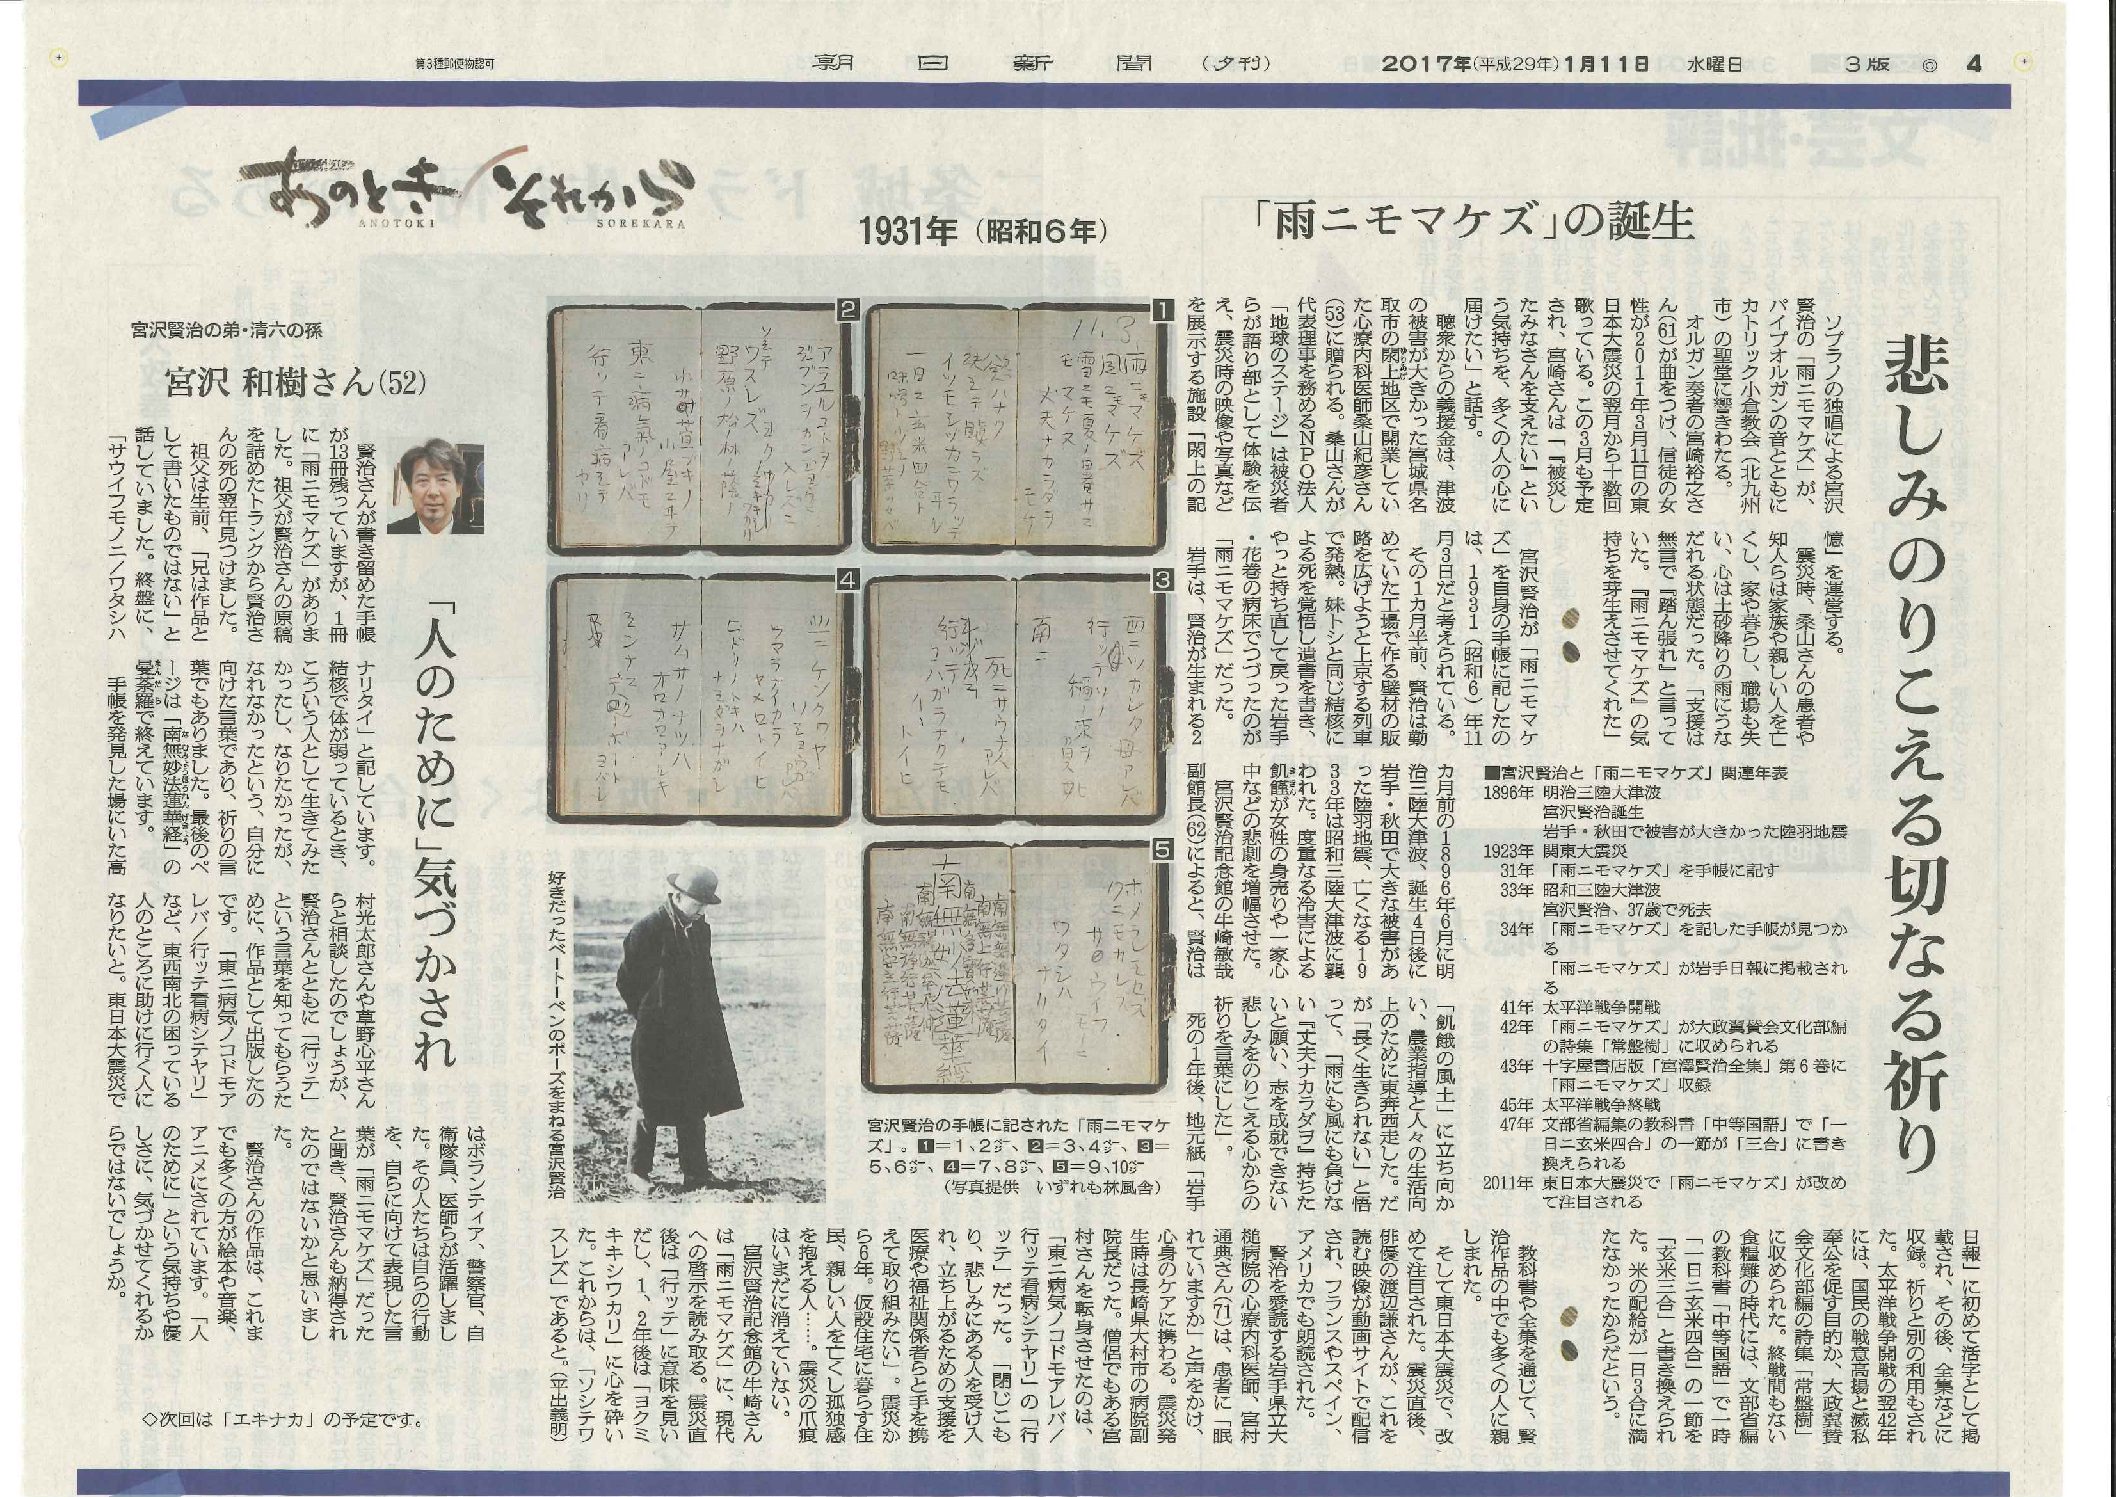 第3種郵便物認可
朝日新聞
(夕刊)
2017年(平成29年)1月11日 水曜日
3版
4
あのとき それから
ANOTOKI
SOREKARA
1931年(昭和6年)
「雨ニモマケズ」の誕生
悲しみのりこえる切なる祈り
ソプラノの独唱による宮沢
賢治の「雨ニモマケズ」が、
パイプオルガンの音とともに
カトリック小倉教会(北九州
市)の聖堂に響きわたる。
オルガン奏者の宮崎裕之さ
ん(61)が曲をつけ、信徒の女
性が2011年3月11日の東
日本大震災の翌月から十数回
歌っている。この3月も予定
され、宮崎さんは「『被災し
たみなさんを支えたい』とい
う気持ちを、多くの人の心に
届けたい」と話す。
聴衆からの義援金は、津波
の被害が大きかった宮城県名
取市の閖上地区で開業してい
た心療内科医師桑山紀彦さん
(53)に贈られる。桑山さんが
代表理事を務めるNPO法人
「地球のステージ」は被災者
らが語り部として体験を伝
え、震災時の映像や写真など
を展示する施設「閖上の記
憶」を運営する。
震災時、桑山さんの患者や
知人らは家族や親しい人を亡
くし、家や暮らし、職場も失
い、心は土砂降りの雨にうな
だれる状態だった。「支援は
無言で『踏ん張れ』と言って
いた。『雨ニモマケズ』の気
持ちを芽生えさせてくれた」
宮沢賢治が「雨ニモマケ
ズ」を自身の手帳に記したの
は、1931(昭和6)年11
月3日だと考えられている。
その1カ月半前、賢治は勤
めていた工場で作る壁材の販
路を広げようと上京する列車
で発熱。妹トシと同じ結核に
よる死を覚悟し遺書を書き、
やっと持ち直して戻った岩手
・花巻の病床でつづったのが
「雨ニモマケズ」だった。
岩手は、賢治が生まれる2
カ月前の1896年6月に明
治三陸大津波、誕生4日後に
岩手・秋田で大きな被害があ
った陸羽地震、亡くなる19
33年は昭和三陸大津波に襲
われた。度重なる冷害による
飢饉が女性の身売りや一家心
中などの悲劇を増幅させた。
宮沢賢治記念館の牛崎敏哉
副館長(62)によると、賢治は
「飢餓の風土」に立ち向か
い、農業指導と人々の生活向
上のために東奔西走した。だ
が「長く生きられない」と悟
って、「雨にも風にも負けな
い『丈夫ナカラダヲ』持ちた
いと願い、志を成就できない
悲しみをのりこえる心からの
祈りを言葉にした」。
死の1年後、地元紙「岩手
日報」に初めて活字として掲
載され、その後、全集などに
収録。祈りと別の利用もされ
た。太平洋戦争開戦の翌42年
には、国民の戦意高揚と滅私
奉公を促す目的か、大政翼賛
会文化部編の詩集「常盤樹」
に収められた。終戦間もない
食糧難の時代には、文部省編
の教科書「中等国語」で一時
「一日ニ玄米四合」の一節を
「玄米三合」と書き換えられ
た。米の配給が一日3合に満
たなかったからだという。
教科書や全集を通じて、賢
治作品の中でも多くの人に親
しまれた。
そして東日本大震災で、改
めて注目された。震災直後、
俳優の渡辺謙さんが、これを
読む映像が動画サイトで配信
され、フランスやスペイン、
アメリカでも朗読された。
賢治を愛読する岩手県立大
槌病院の心療内科医師、宮村
通典さん(71)は、患者に「眠
れていますか」と声をかけ、
心身のケアに携わる。震災発
生時は長崎県大村市の病院副
院長だった。僧侶でもある宮
村さんを転身させたのは、
「東ニ病気ノコドモアレバ/
行ッテ看病シテヤリ」の「行
ッテ」だった。「閉じこも
り、悲しみにある人を受け入
れ、立ち上がるための支援を
医療や福祉関係者らと手を携
えて取り組みたい」。震災か
ら6年。仮設住宅に暮らす住
民、親しい人を亡くし孤独感
を抱える人……。震災の爪痕
はいまだに消えていない。
宮沢賢治記念館の牛崎さん
は「雨ニモマケズ」に、現代
への啓示を読み取る。震災直
後は「行ッテ」に意味を見い
だし、1、2年後は「ヨクミ
キキシワカリ」に心を砕い
た。これからは、「ソシテワ
スレズ」であると。(平出義明)
■宮沢賢治と「雨ニモマケズ」関連年表
1896年 明治三陸大津波
宮沢賢治誕生
岩手・秋田で被害が大きかった陸羽地震
1923年 関東大震災
31年 「雨ニモマケズ」を手帳に記す
33年 昭和三陸大津波
宮沢賢治、37歳で死去
34年 「雨ニモマケズ」を記した手帳が見つか
る
「雨ニモマケズ」が岩手日報に掲載され
る
41年 太平洋戦争開戦
42年 「雨ニモマケズ」が大政翼賛会文化部編
の詩集「常盤樹」に収められる
43年 十字屋書店版「宮澤賢治全集」第6巻に
「雨ニモマケズ」収録
45年 太平洋戦争終戦
47年 文部省編集の教科書「中等国語」で「一
日ニ玄米四合」の一節が「三合」に書き
換えられる
2011年 東日本大震災で「雨ニモマケズ」が改め
て注目される
1
11.3.
雨ニモマケズ
風ニモマケズ
雪ニモ夏ノ暑サニ
モマケヌ
丈夫ナカラダヲ
モチ
慾ハナク
決シテ瞋ラズ
イツモシヅカニワラッテ
ヰル
一日ニ玄米四合ト
味噌ト少シノ
野菜ヲタベ
2
アラユルコトヲ
ジブンヲカンジョウニ
入レズニ
ヨクミキキシ
ワカリ
ソシテ
ワスレズ
野原ノ松ノ林ノ蔭ノ
小サナ萓ブキノ
小屋ニヰテ
東ニ病気ノコドモ
アレバ
行ッテ看病シテ
ヤリ
3
西ニツカレタ母アレバ
行ッテソノ
稲ノ束ヲ
負ヒ
南ニ
死ニサウナ人
アレバ
行ッテ
コハガラナクテモ
イヽ
トイヒ
4
北ニケンクヮヤ
ソショウガ
ツマラナイカラ
ヤメロトイヒ
ヒドリノトキハ
ナミダヲナガシ
サムサノナツハ
オロオロアルキ
ミンナニ
デクノボート
ヨバレ
5
ホメラレモセズ
クニモサレズ
サウイフ
モノニ
ワタシハ
ナリタイ
南無妙法蓮華経
宮沢賢治の手帳に記された「雨ニモマケ
ズ」。1=1、2㌻、2=3、4㌻、3=
5、6㌻、4=7、8㌻、5=9、10㌻
(写真提供 いずれも林風舎)
好きだったベートーベンのポーズをまねる宮沢賢治
宮沢賢治の弟・清六の孫
宮沢 和樹さん(52)
「人のために」気づかされ
賢治さんが書き留めた手帳
が13冊残っていますが、1冊
に「雨ニモマケズ」がありま
した。祖父が賢治さんの原稿
を詰めたトランクから賢治さ
んの死の翌年見つけました。
祖父は生前、「兄は作品と
して書いたものではない」と
話していました。終盤に、
「サウイフモノニ/ワタシハ
ナリタイ」と記しています。
結核で体が弱っているとき、
こういう人として生きてみた
かったし、なりたかったが、
なれなかったという、自分に
向けた言葉であり、祈りの言
葉でもありました。最後のペ
ージは「南無妙法蓮華経」の
曼荼羅で終えています。
手帳を発見した場にいた高
村光太郎さんや草野心平さん
らと相談したのでしょうが、
賢治さんとともに「行ッテ」
という言葉を知ってもらうた
めに、作品として出版したの
です。「東ニ病気ノコドモア
レバ/行ッテ看病シテヤリ」
など、東西南北の困っている
人のところに助けに行く人に
なりたいと。東日本大震災で
はボランティア、警察官、自
衛隊員、医師らが活躍しまし
た。その人たちは自らの行動
を、自らに向けて表現した言
葉が「雨ニモマケズ」だった
と聞き、賢治さんも納得され
たのではないかと思いまし
た。
賢治さんの作品は、これま
でも多くの方が絵本や音楽、
アニメにされています。「人
のために」という気持ちや優
しさに、気づかせてくれるか
らではないでしょうか。
◇次回は「エキナカ」の予定です。